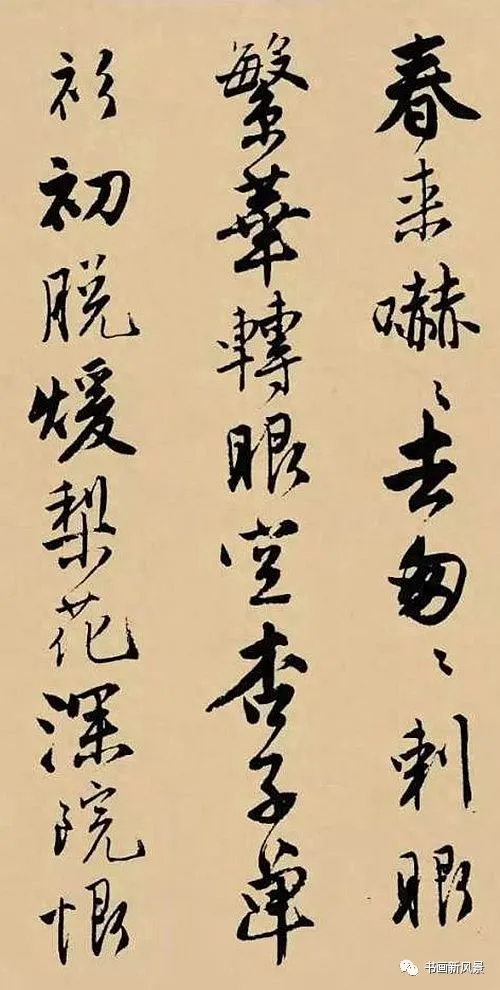 春来嚇〻去匆〻刺眼
繁華轉眼空杏子單
衫初脱煖梨花深院恨
书画新风景